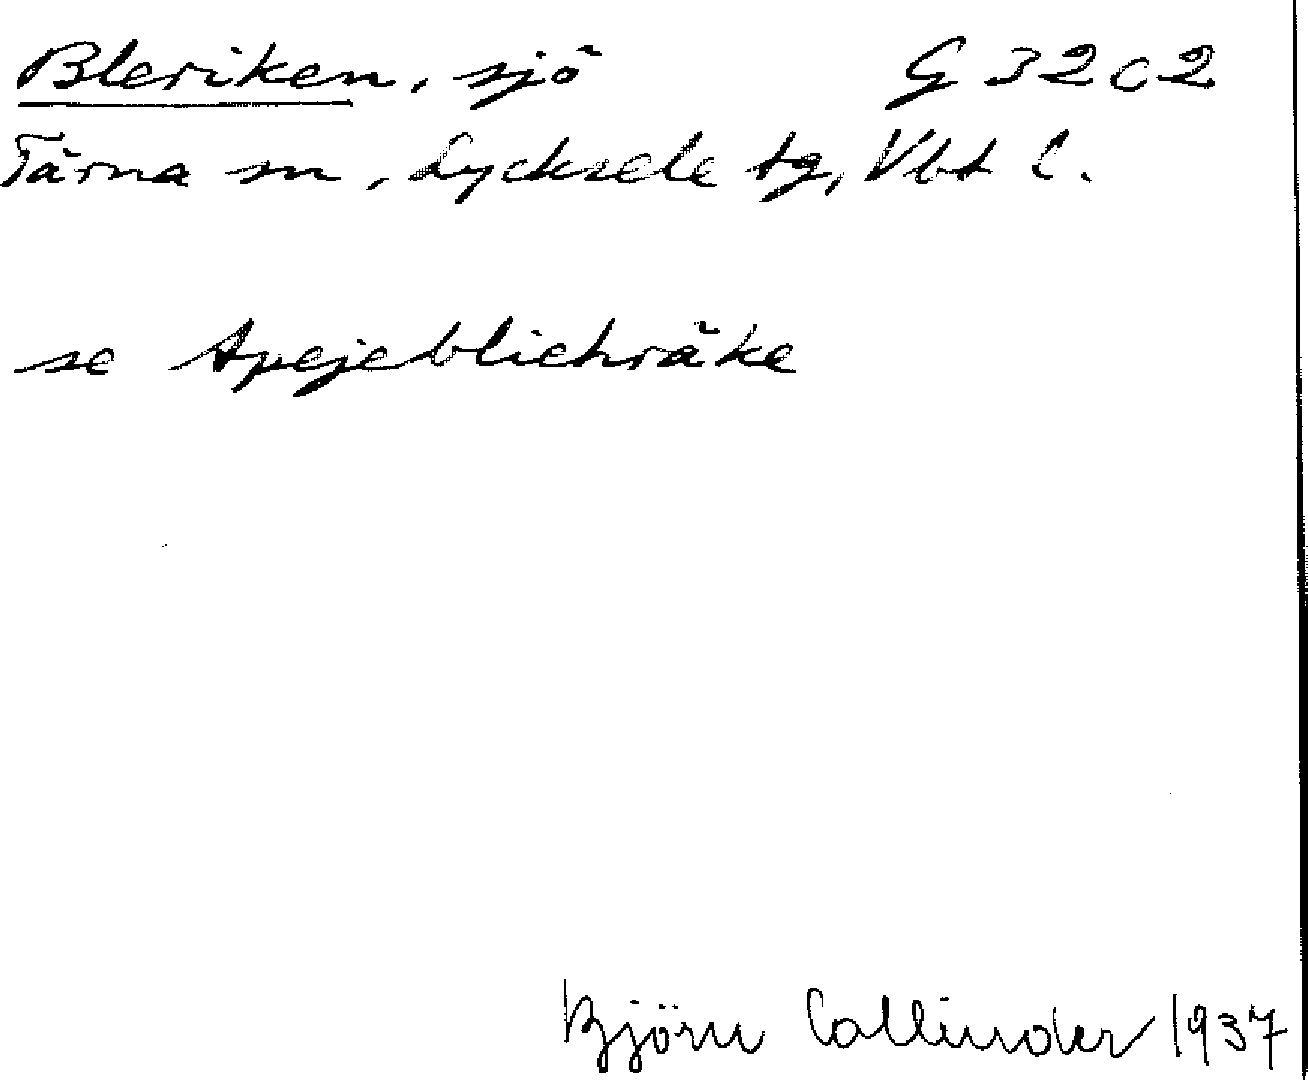 Bleriken, sjö G 32 c 2
Tärna sn, Lycksele tg, Vbt l.
se Apejeblichräke
Björn Collinder 1937